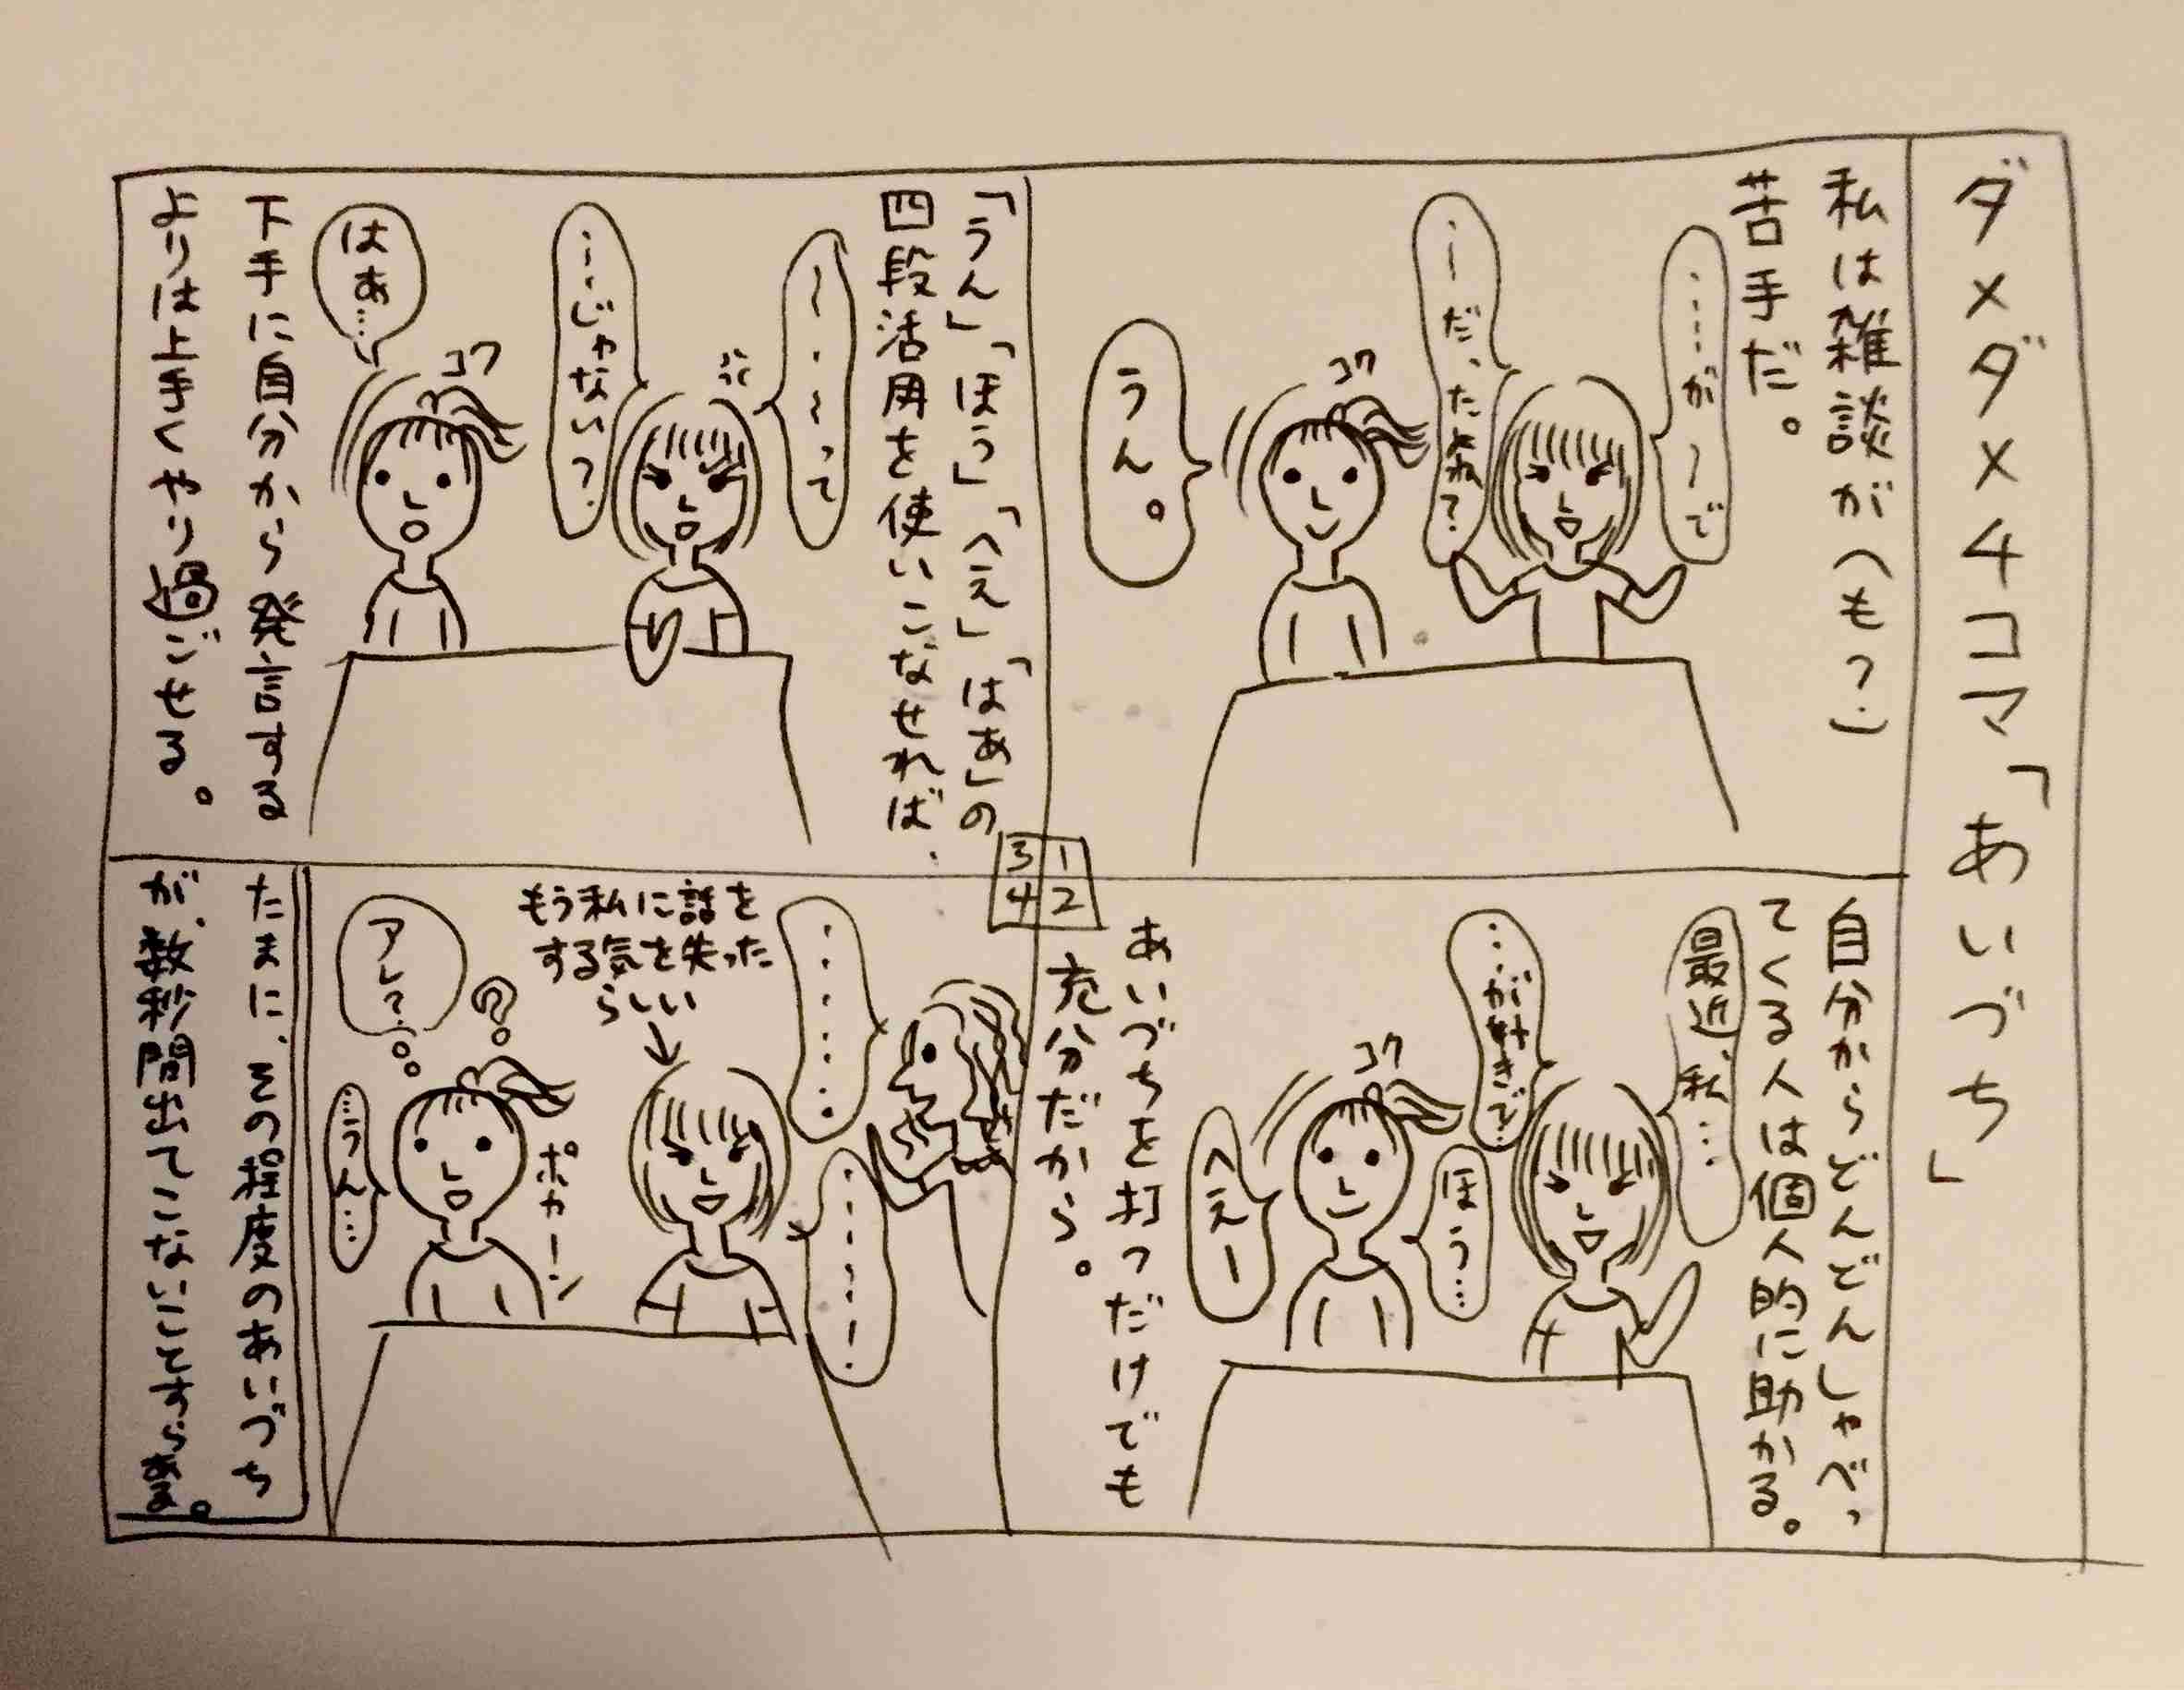 ダメダメ4コマ「あいづち」
私は雑談が(も?)
苦手だ。
……が～で
…ーだったよね?
コク
うん。
自分からどんどんしゃべっ
てくる人は個人的に助かる。
最近、私…
…が好きで…
ほう…
コク
へえー
あいづちを打つだけでも
充分だから。
3 1
4 2
「うん」「ほう」「へえ」「はあ」の
四段活用を使いこなせれば、
～・～って
…ーじゃない?
コク
はあ…
下手に自分から発言する
よりは上手くやり過ごせる。
もう私に話を
する気を失った
らしい
ポカーン
アレ?
…うん…
たまに、その程度のあいづち
が、数秒間出てこないことすらある。